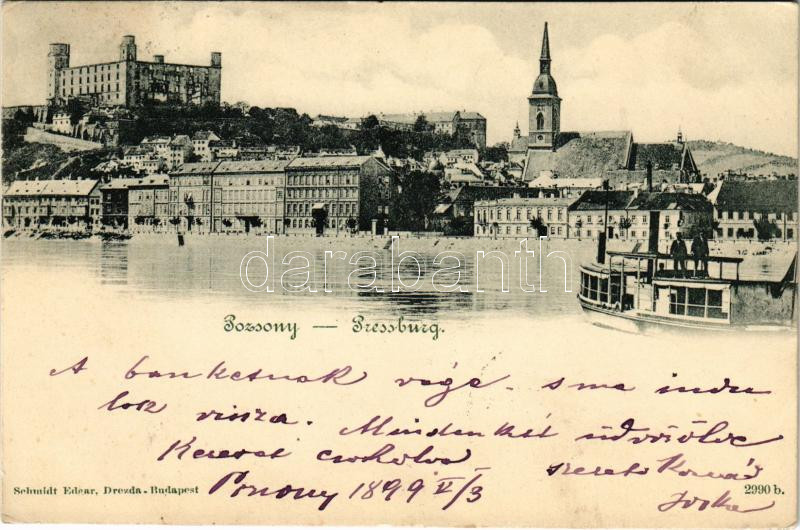 darabanth.com
Pozsony — Pressburg.
A banketnak vége. s ma indu
lok vissza. Mindenkit üdvözölve
Kezeset csokolva szerető
Schmidt Edgar, Drezda-Budapest
Pozsony 1899 V/3
2990 b.